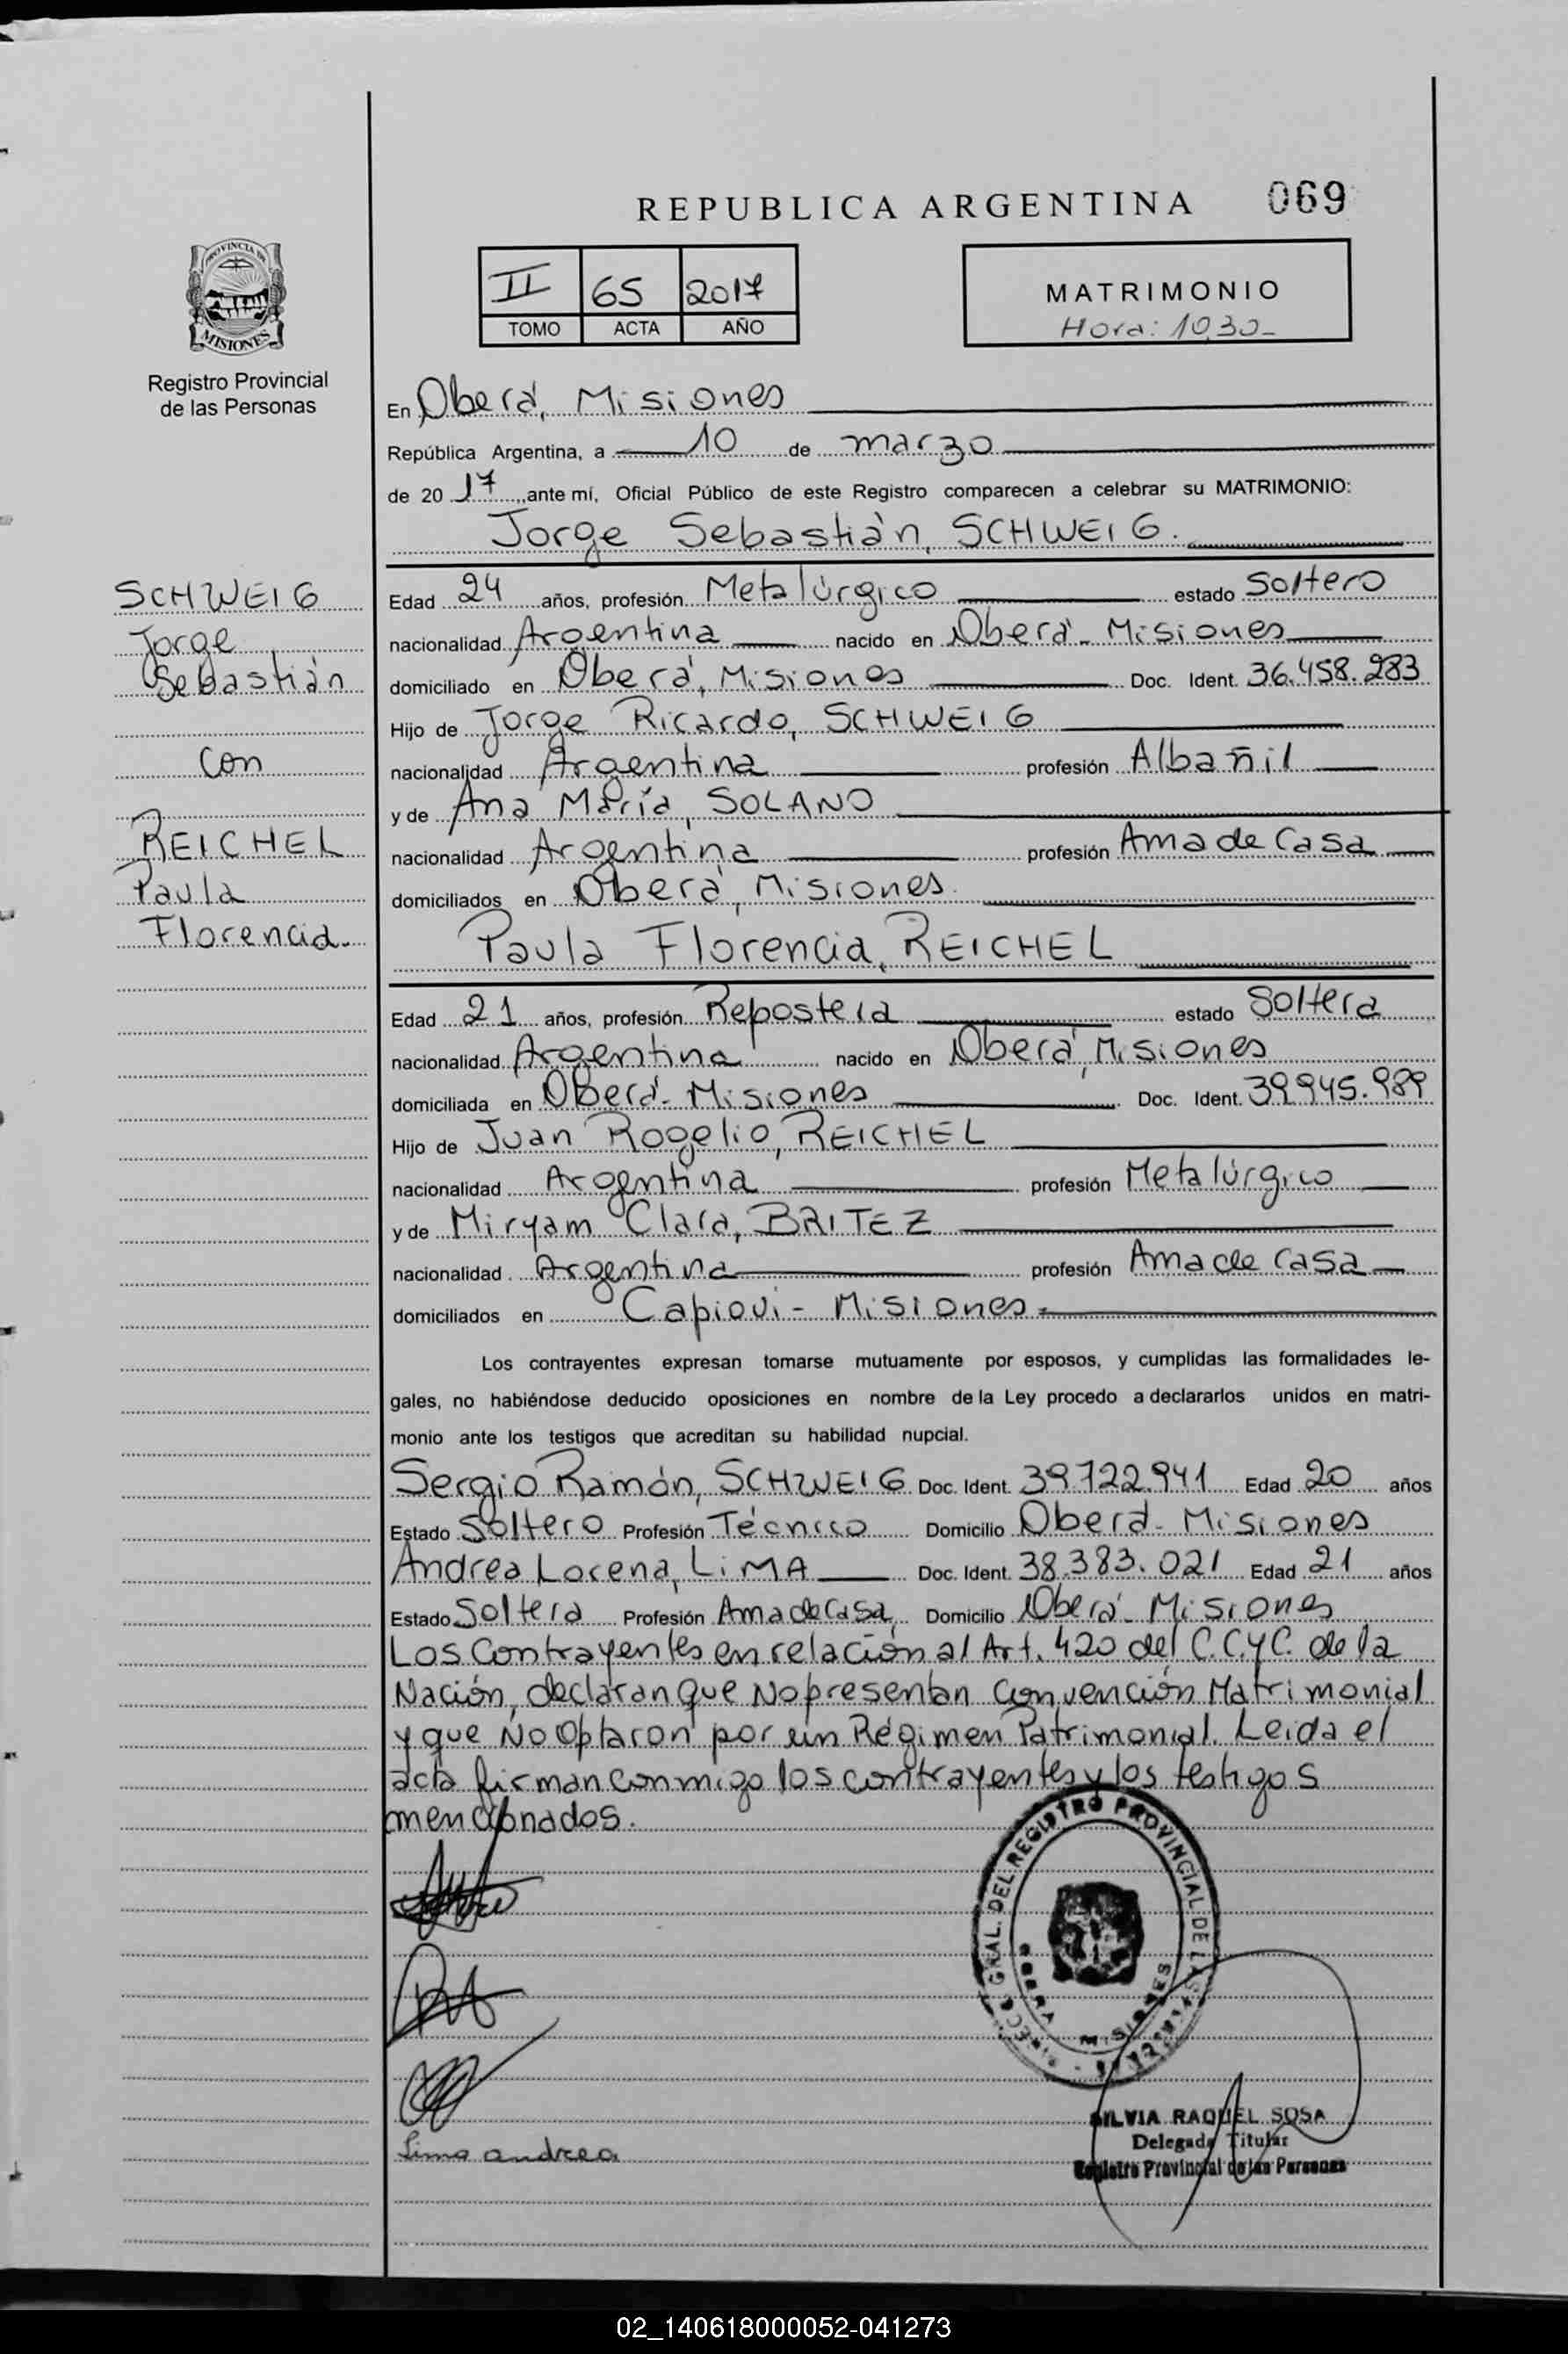 REPUBLICA ARGENTINA 069
PROVINCIA DE
MISIONES
Registro Provincial
de las Personas
II 65 2017
TOMO ACTA AÑO
MATRIMONIO
Hora: 10,30_
En Oberá, Misiones
República Argentina, a 10 de marzo
de 2017, ante mí, Oficial Público de este Registro comparecen a celebrar su MATRIMONIO:
Jorge Sebastián, SCHWEIG.
SCHWEIG
Jorge
Sebastián
con
REICHEL
Paula
Florencia.
Edad 24 años, profesión Metalúrgico estado Soltero
nacionalidad Argentina nacido en Oberá- Misiones
domiciliado en Oberá, Misiones Doc. Ident. 36.458.283
Hijo de Jorge Ricardo, SCHWEIG
nacionalidad Argentina profesión Albañil
y de Ana María, SOLANO
nacionalidad Argentina profesión Ama de Casa
domiciliados en Oberá, Misiones.
Paula Florencia, REICHEL
Edad 21 años, profesión Repostera estado Soltera
nacionalidad Argentina nacido en Oberá, Misiones
domiciliada en Oberá- Misiones Doc. Ident. 39.945.989
Hijo de Juan Rogelio, REICHEL
nacionalidad Argentina profesión Metalúrgico
y de Miryam Clara, BRITEZ
nacionalidad Argentina profesión Ama de casa
domiciliados en Capiovi- Misiones-
Los contrayentes expresan tomarse mutuamente por esposos, y cumplidas las formalidades le-
gales, no habiéndose deducido oposiciones en nombre de la Ley procedo a declararlos unidos en matri-
monio ante los testigos que acreditan su habilidad nupcial.
Sergio Ramón, SCHWEIG Doc. Ident. 39.722.941 Edad 20 años
Estado Soltero Profesión Técnico Domicilio Oberá- Misiones
Andrea Lorena, LIMA Doc. Ident. 38.383.021 Edad 21 años
Estado Soltera Profesión Ama de Casa Domicilio Oberá- Misiones
Los Contrayentes en relación al Art. 420 del C.C.yC. de la
Nación, declaran que No presentan Convención Matrimonial
y que No Optaron por un Régimen Patrimonial. Leida el
acta firman conmigo los contrayentes y los testigos
mencionados.
GRAL. DEL REGISTRO PROVINCIAL DE LAS
OBERA MISIONES
Lima andrea
SILVIA RAQUEL SOSA
Delegada Titular
Registro Provincial de las Personas
02_140618000052-041273